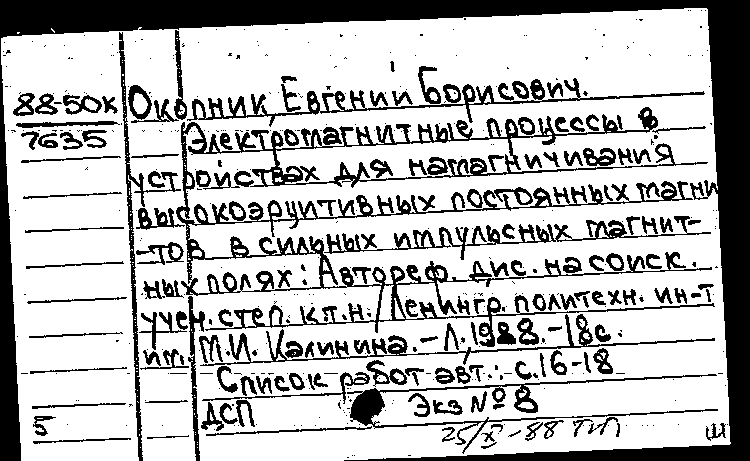 88-50К
7635
Окопник, Евгений Борисович.
Электромагнитные процессы в
устройствах для намагничивания
высокоэрцитивных постоянных магни
-тов в сильных импульсных магнит-
ных полях: Автореф. дис. на соиск.
учен. степ. к.т.н. / Ленингр. политехн. ин-т
им. М.И. Калинина. - Л., 1988. - 18с.
Список работ авт.: с. 16-18
ДСП Экз № 8
5
25/XI-88 тип
Ш